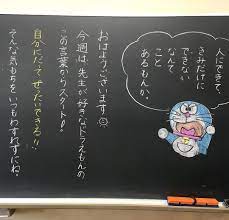 人にできて、
きみだけに
できない
なんて
こと
あるもんか。
おはようございます
今週は、先生が好きなドラえもんの
この言葉からスタート!
自分にだってぜったいできる!!
そんな気もちをいつもわすれずにね。